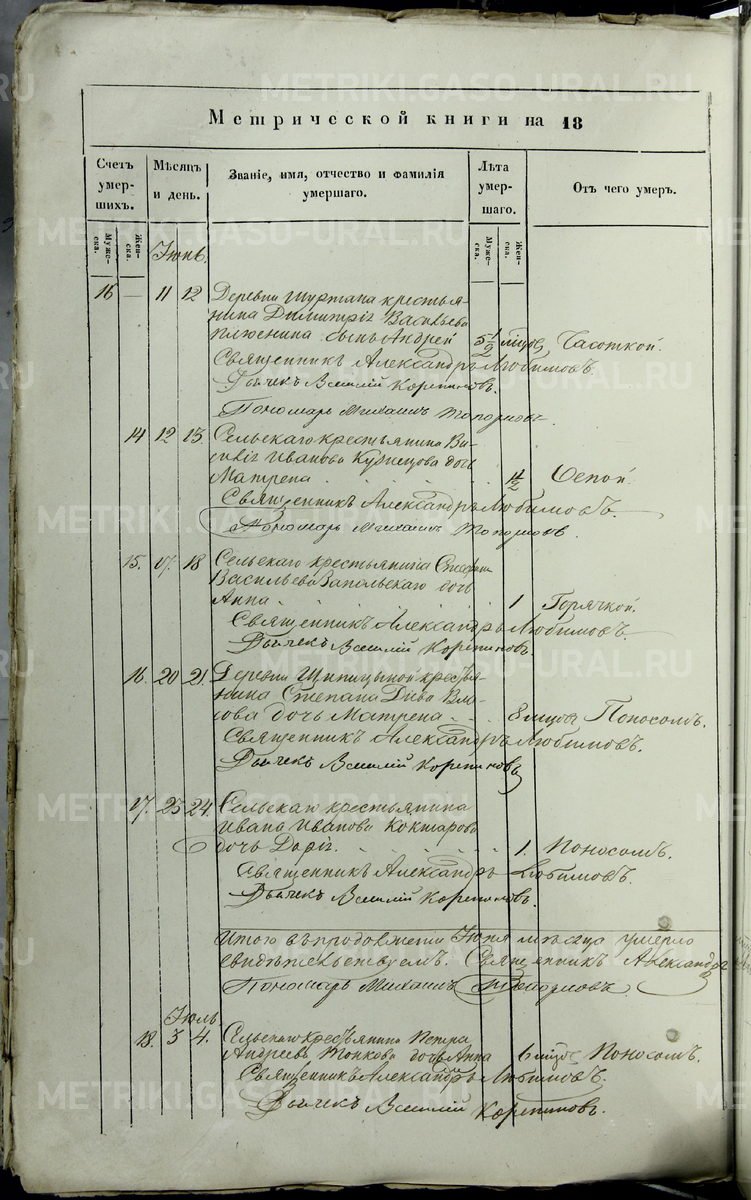 Метрической книги на 18
Счетъ умершихъ.
Мѣсяцъ и день.
Званіе, имя, отчество и фамилія умершаго.
Лѣта умершаго.
Отъ чего умеръ.
Мужеска.
Женска.
Мужеска.
Женска.
Іюнь.
16 — 11 12 Деревни Шуртана крестья-
нина Димитрія Васильева
сынъ Андрей 5 1/2 мцовъ Чесоткой.
Священникъ Александръ Любимовъ.
Дьячекъ Василій Корепиновъ.
Пономарь Михаилъ Топорковъ.
14 12 13. Сельскаго крестьянина
Иванова Кузнецова дочь
Матрена 1/2 Оспой.
Священникъ Александръ Любимовъ.
Пономарь Михаилъ Топорковъ.
15. 17. 18 Сельскаго крестьянина
Васильева дочь
Анна 1 Горячкой.
Священникъ Александръ Любимовъ.
Дьячекъ Василій Корепиновъ.
16. 20 21. Деревни Шипицыной крестья-
нина Степана Вла-
сова дочь Матрена 8 мцовъ Поносомъ.
Священникъ Александръ Любимовъ.
Дьячекъ Василій Корепиновъ
17. 23 24. Сельскаго крестьянина
Ивана Иванова Кокшарова
дочь Дарія 1. Поносомъ.
Священникъ Александръ Любимовъ.
Дьячекъ Василій Корепиновъ.
Итого въ продолженіи Іюня мѣсяца умерло
свидѣтельствуемъ. Священникъ Александръ
Пономарь Михаилъ Топорковъ
Іюль
18. 3 4. Сельскаго крестьянина Петра
Андреева дочь Анна 6 мцовъ Поносомъ.
Священникъ Александръ Любимовъ.
Дьячекъ Василій Корепиновъ.
METRIKI.GASO-URAL.RU